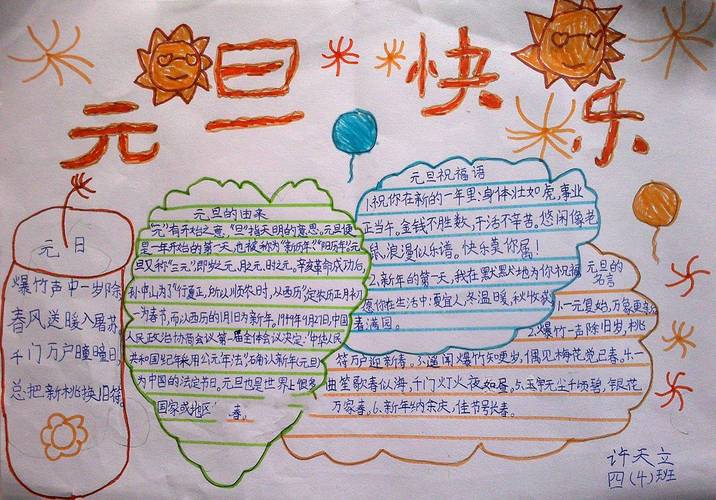 元旦快乐
元日
爆竹声中一岁除
春风送暖入屠苏
千门万户曈曈日
总把新桃换旧符
元旦的由来
"元"有开始之意,"旦"指天明的意思。元旦便
是一年开始的第一天,也被称为"新历年""阳历年"。元
旦又称"三元",即岁之元、月之元、时之元。辛亥革命成功后,
孙中山为了"行夏正,所以顺农时,从西历"定农历正月初
一为春节,而以西历的1月1日为新年。1949年9月27日,中国
人民政治协商会议第一届全体会议决定:"中华人民
共和国纪年采用公元年法",确认新年(元旦)
为中国的法定节日。元旦也是世界上很多
国家或地区
元旦祝福语
1.祝你在新的一年里:身体壮如虎,事业
正当午。金钱不胜数,干活不辛苦。悠闲像老
鼠,浪漫似乐谱。快乐莫你属!
2.新年的第一天,我在默默地为你祝福
愿你在生活中:夏宜人,冬温暖,秋收获
春满园。
元旦的
名言
1.一元复始,万象更
2.爆竹一声除旧岁,桃
符万户迎新春。3.遥闻爆竹知更岁,偶见梅花觉已春。4.一
曲笙歌春似海,千门灯火夜如昼。5.玉宇无尘千顷碧,银花
万家春。6.新年纳余庆,佳节号长春。
许天立
四(4)班